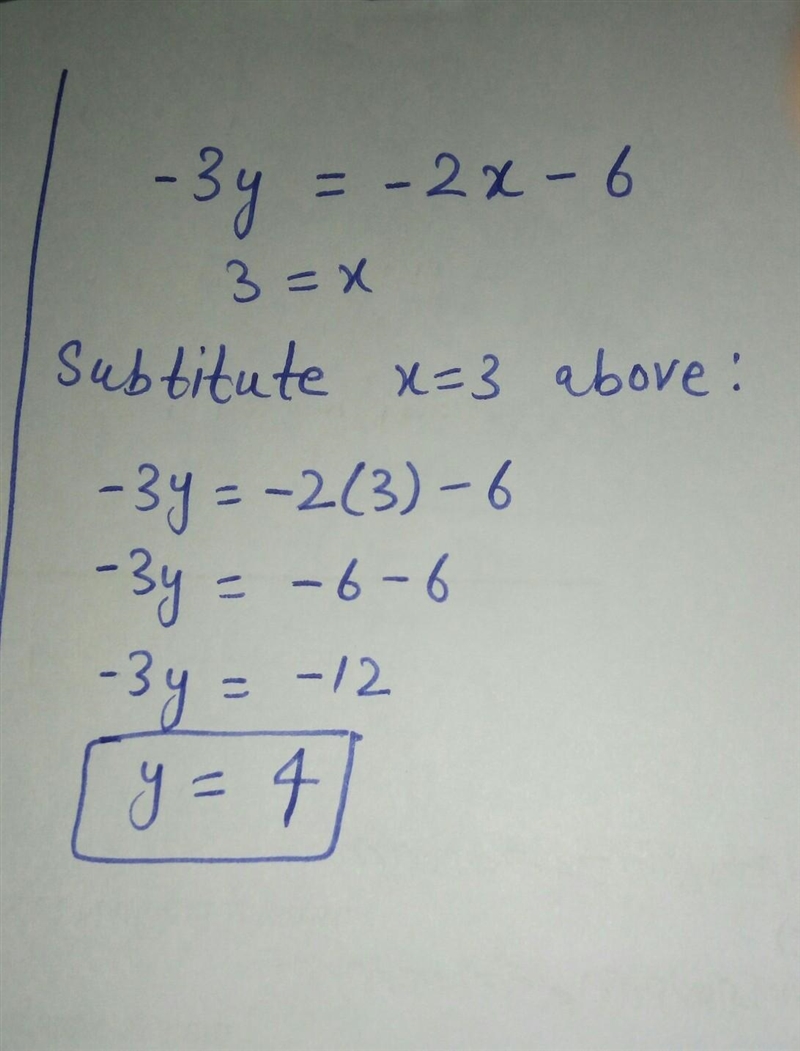 -3y = -2x - 6
3 = x
Subtitute x=3 above:
-3y = -2(3) - 6
-3y = -6 - 6
-3y = -12
y = 4